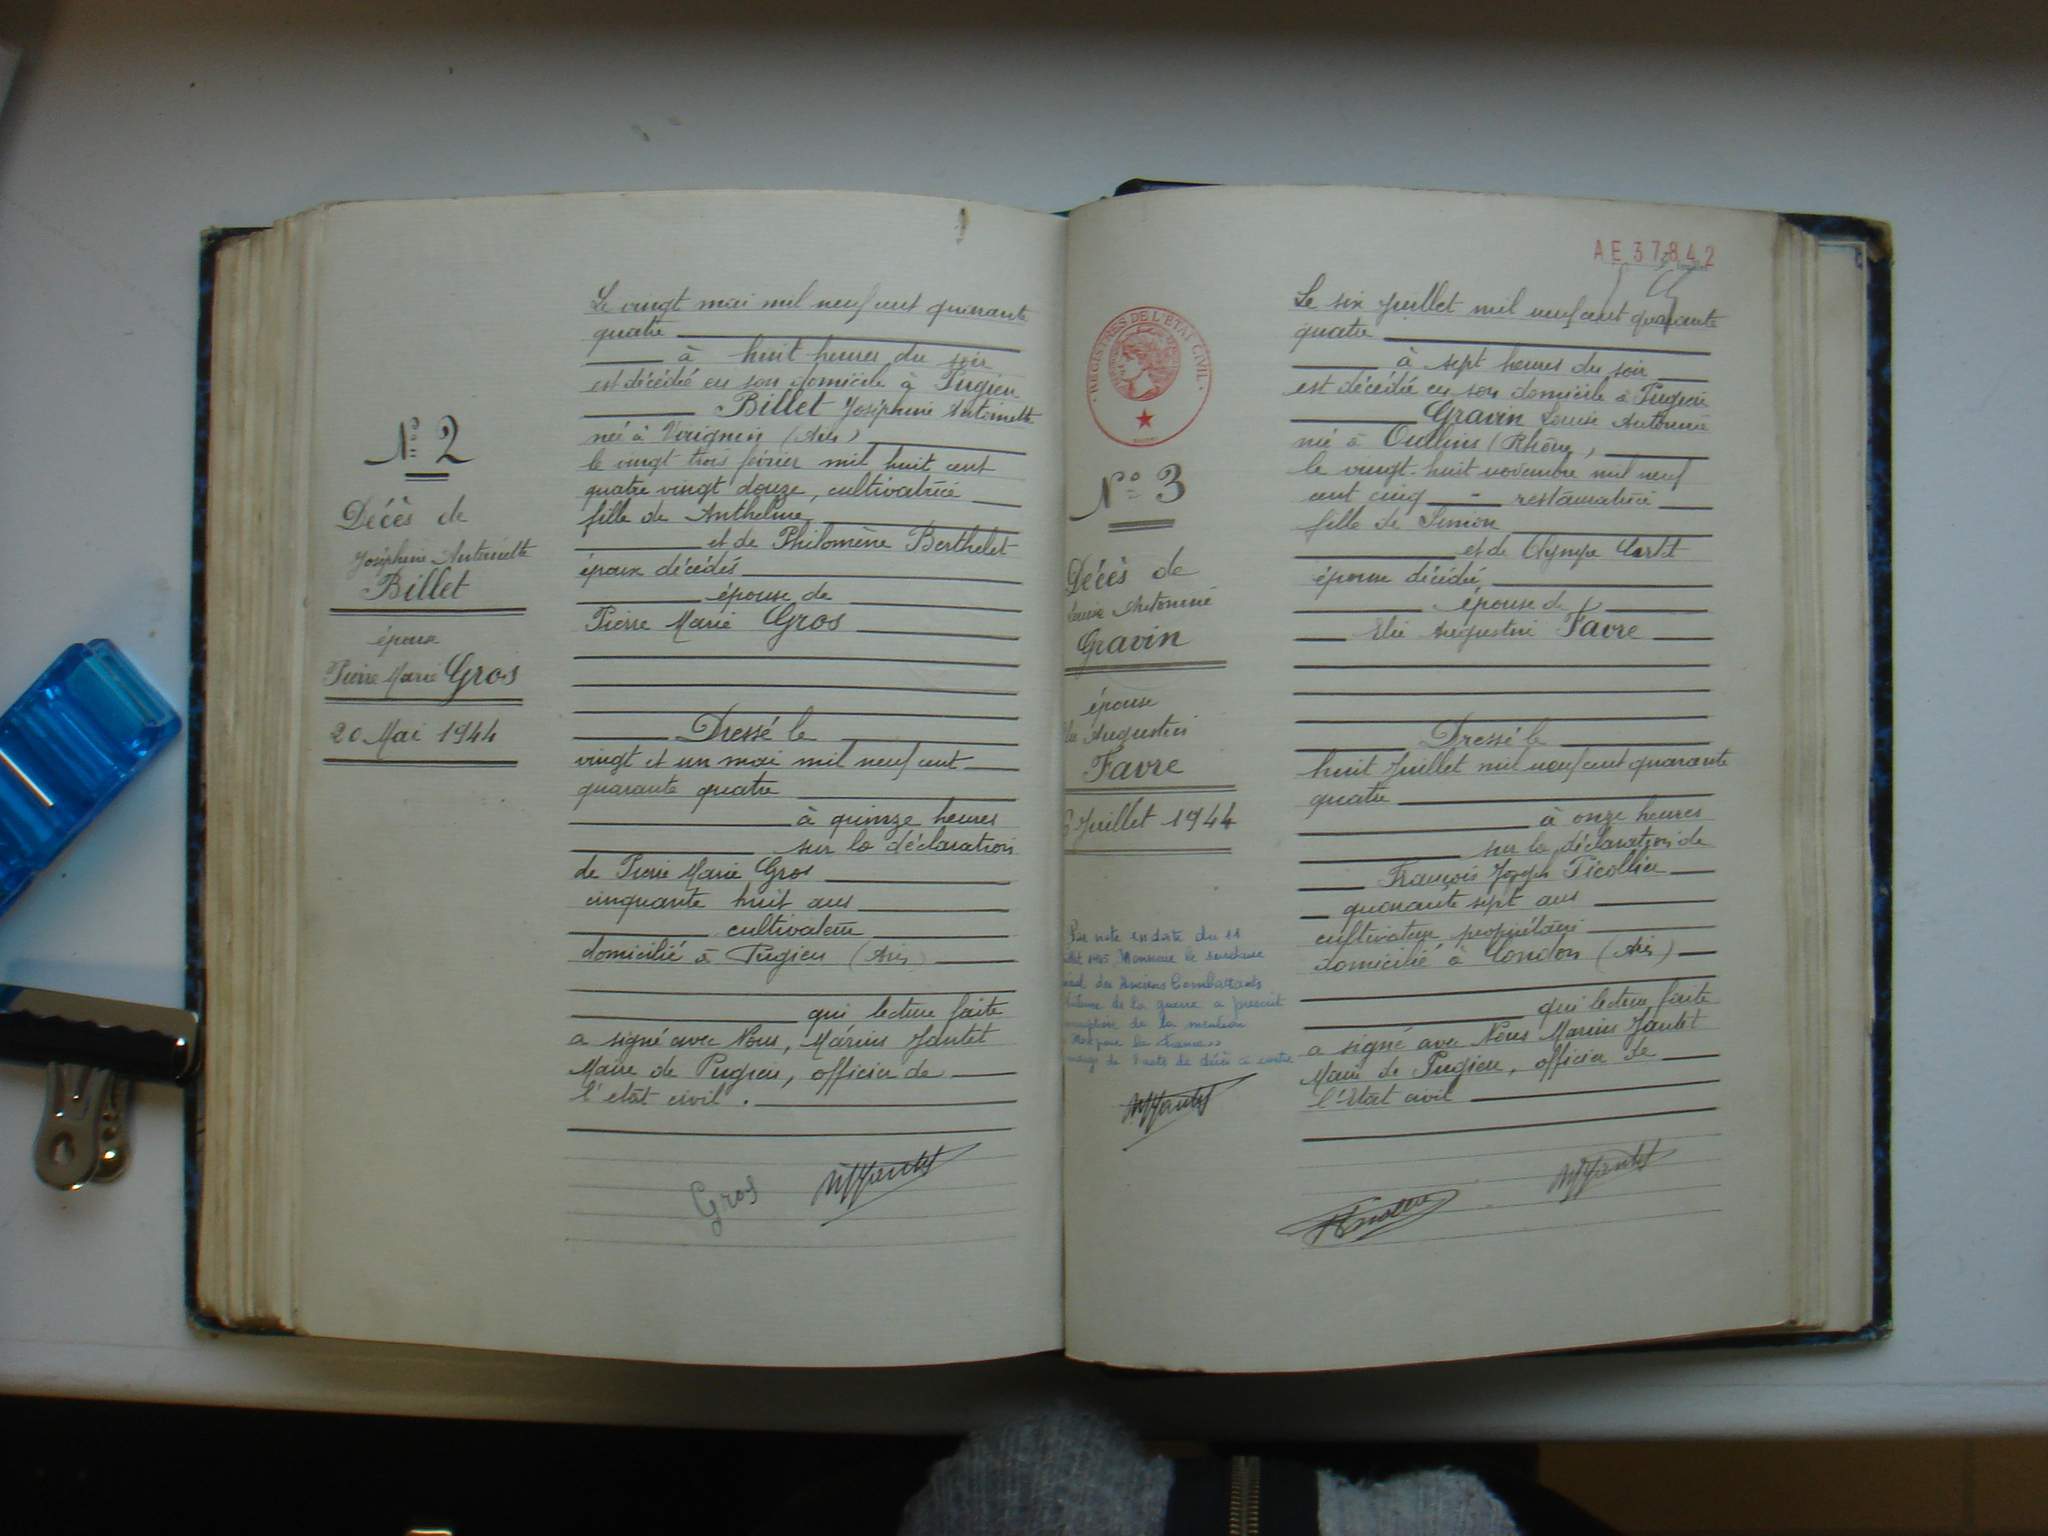 N° 2
Décès de
Joséphine Antoinette
Billet
épouse
Pierre Marie Gros
20 Mai 1944
Le vingt mai mil neuf cent quarante
quatre
à huit heures du soir
est décédée en son domicile à Pugieu
Billet Joséphine Antoinette
née à Virignin (Ain)
le vingt trois février mil huit cent
quatre vingt douze, cultivatrice
fille de Anthelme
et de Philomène Berthelet
époux décédés
épouse de
Pierre Marie Gros
Dressé le
vingt et un mai mil neuf cent
quarante quatre
à quinze heures
sur la déclaration
de Pierre Marie Gros
cinquante huit ans
cultivateur
domicilié à Pugieu (Ain)
qui lecture faite
a signé avec Nous, Marius Jantet
Maire de Pugieu, officier de
l'état civil.
Gros
MJantet
AE 37842
REGISTRES DE L'ETAT CIVIL
N° 3
Décès de
Louise Antonine
Gravin
épouse
Augustin
Favre
6 Juillet 1944
Par note en date du 11
Monsieur le
des Anciens Combattants
de la guerre a prescrit
de la mention
pour la France"
de l'acte de décès ci contre
MJantet
Le six Juillet mil neuf cent quarante
quatre
à sept heures du soir
est décédée en son domicile à Pugieu
Gravin Louise Antonine
née à Oullins (Rhône)
le vingt-huit novembre mil neuf
cent cinq - restauratrice
fille de Simon
et de Olympe
épouse décédée
épouse de
Elie Augustin Favre
Dressé le
huit Juillet mil neuf cent quarante
quatre
à onze heures
sur la déclaration de
François Joseph Picollier
quarante sept ans
cultivateur propriétaire
domicilié à Condon (Ain)
qui lecture faite
a signé avec Nous Marius Jantet
Maire de Pugieu, officier de
l'Etat civil
MJantet